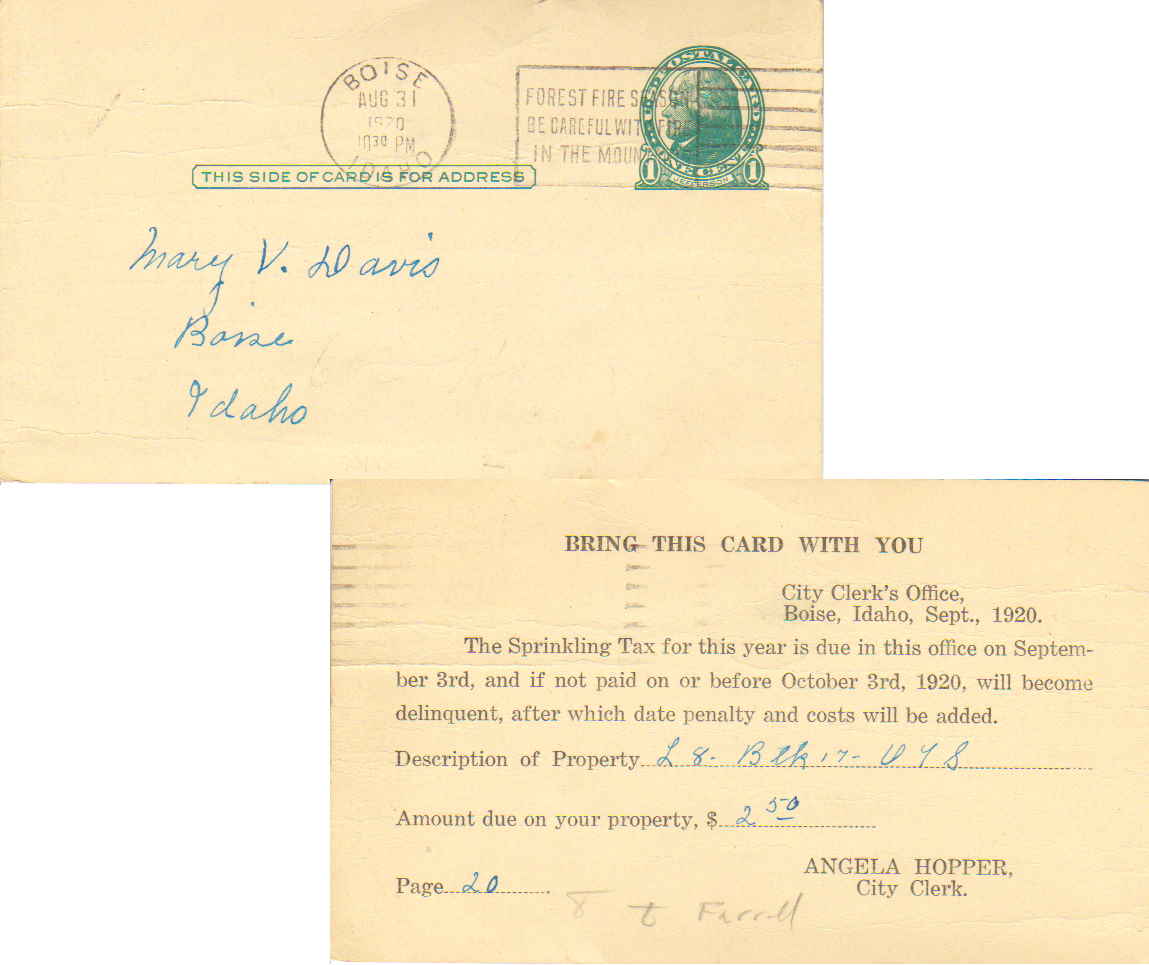 BOISE
AUG 31
1920
1030 PM
IDAHO
FOREST FIRE SEASON
BE CAREFUL WITH FIRE
IN THE MOUN
U.S. POSTAL CARD
ONE CENT
1 JEFFERSON 1
THIS SIDE OF CARD IS FOR ADDRESS
Mary V. Davis
Boise
Idaho
BRING THIS CARD WITH YOU
City Clerk's Office,
Boise, Idaho, Sept., 1920.
The Sprinkling Tax for this year is due in this office on Septem-
ber 3rd, and if not paid on or before October 3rd, 1920, will become
delinquent, after which date penalty and costs will be added.
Description of Property L 8- Blk 17- O T S
Amount due on your property, $ 2 50
ANGELA HOPPER,
Page 20.
City Clerk.
Farrell